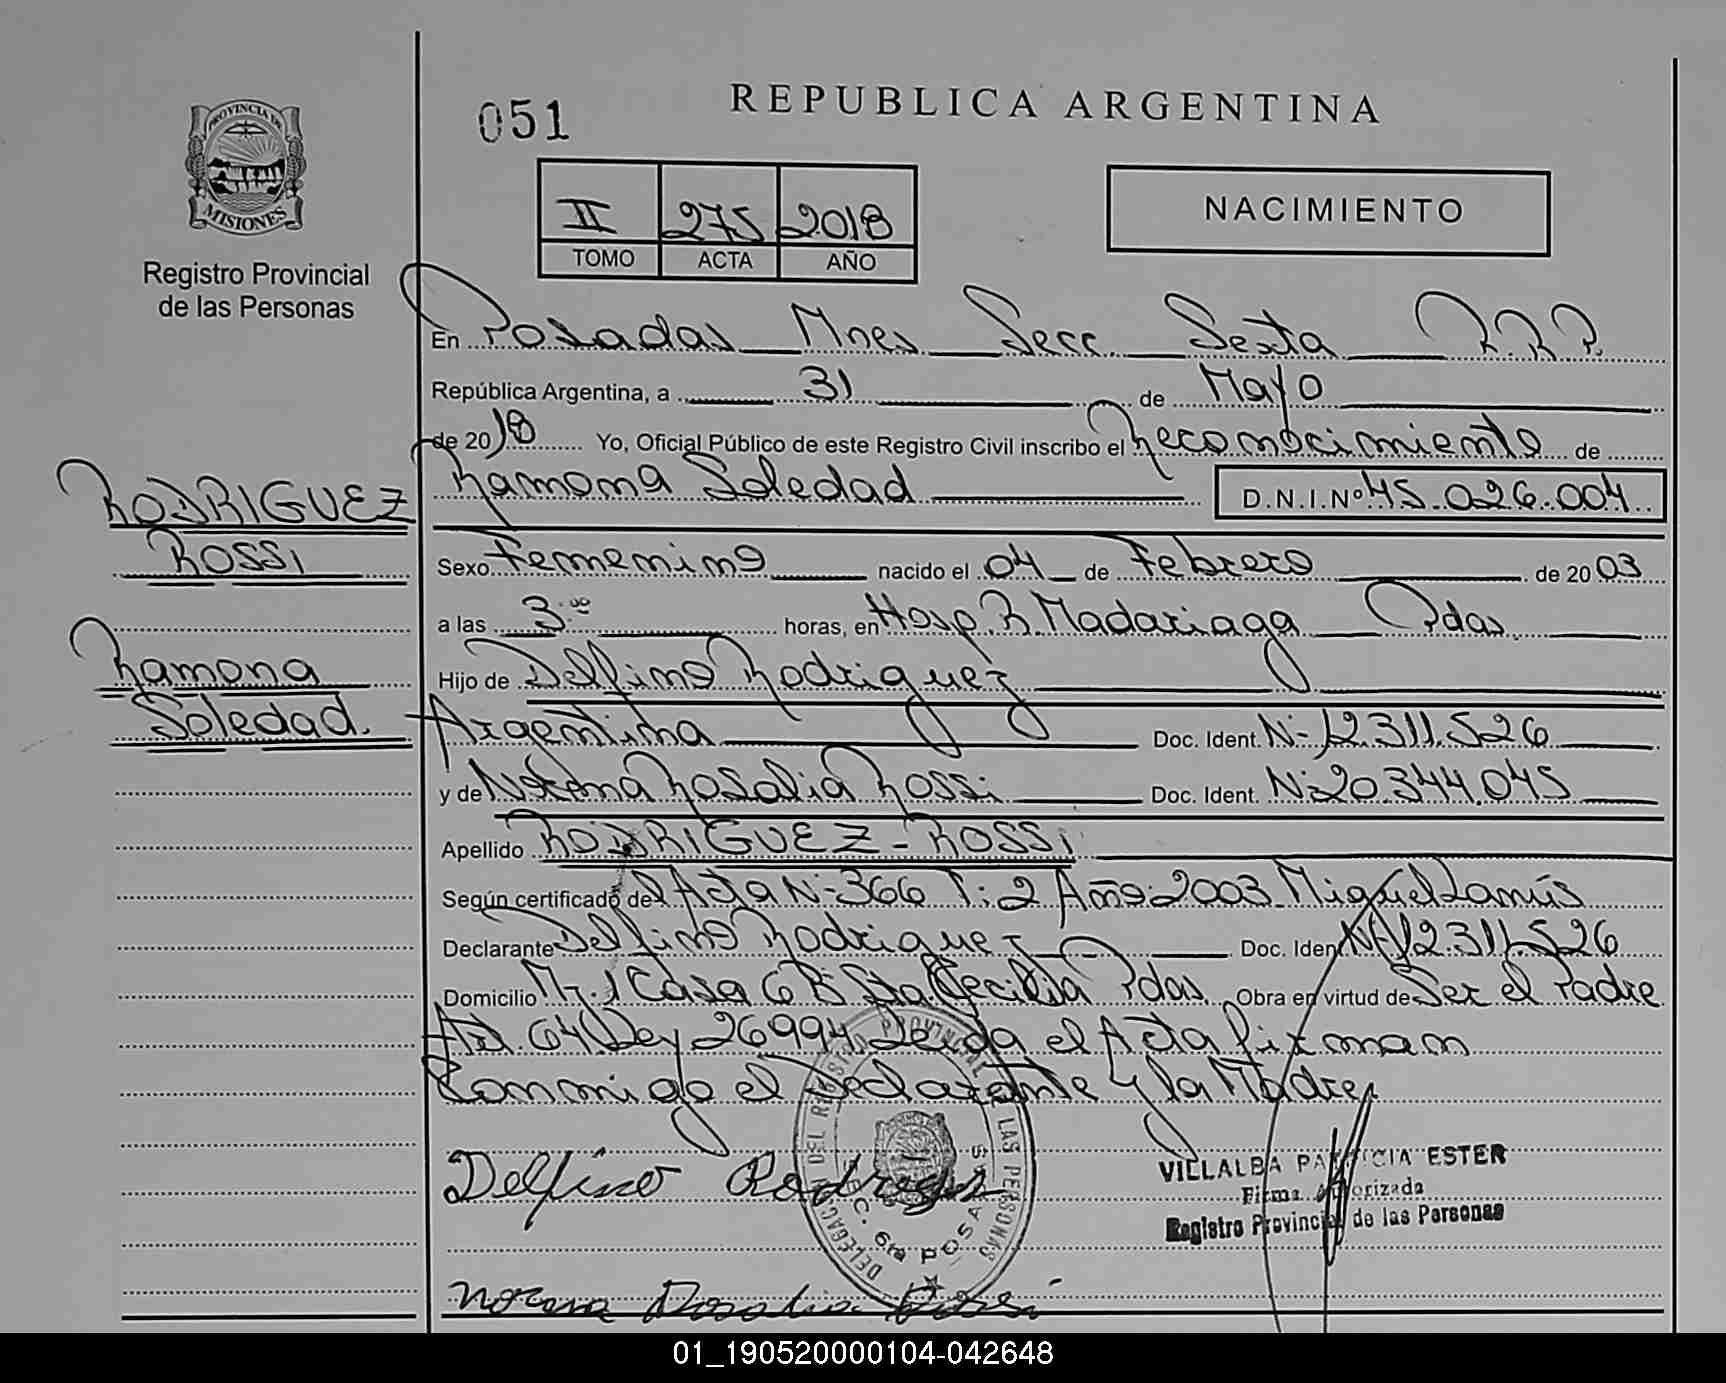 051
REPUBLICA ARGENTINA
PROVINCIA DE
MISIONES
Registro Provincial
de las Personas
II 275 2018
TOMO ACTA AÑO
NACIMIENTO
En Posadas Mnes Secc. Sexta R.R.P.
República Argentina, a 31 de Mayo
de 2018 Yo, Oficial Público de este Registro Civil inscribo el Reconocimiento de
Ramona Soledad D.N.I.Nº 45.026.004
RODRIGUEZ
ROSSI
Ramona
Soledad.
Sexo Femenino nacido el 04 de Febrero de 2003
a las 3:00 horas, en Hosp. R. Madariaga Pdas.
Hijo de Delfino Rodriguez
Argentina Doc. Ident. Nº 12.311.526
y de Norma Rosalia Rossi Doc. Ident. Nº 20.344.045
Apellido RODRIGUEZ - ROSSI
Según certificado del Acta Nº 366 T: 2 Año: 2003 Miguel Lanús
Declarante Delfino Rodriguez Doc. Ident. Nº 12.311.526
Domicilio Mz. 1 Casa 6 Bº Sta. Cecilia Pdas. Obra en virtud de Ser el Padre
Art 64 Ley 26994 Leida el Acta firman
Conmigo el Declarante y la Madre
Delfino Rodrigues
DELEGACION DEL REGISTRO PROVINCIAL DE LAS PERSONAS
SEC. 6ta POSADAS
VILLALBA PATRICIA ESTER
Firma Autorizada
Registro Provincial de las Personas
Norma Rosalia Rossi
01_190520000104-042648